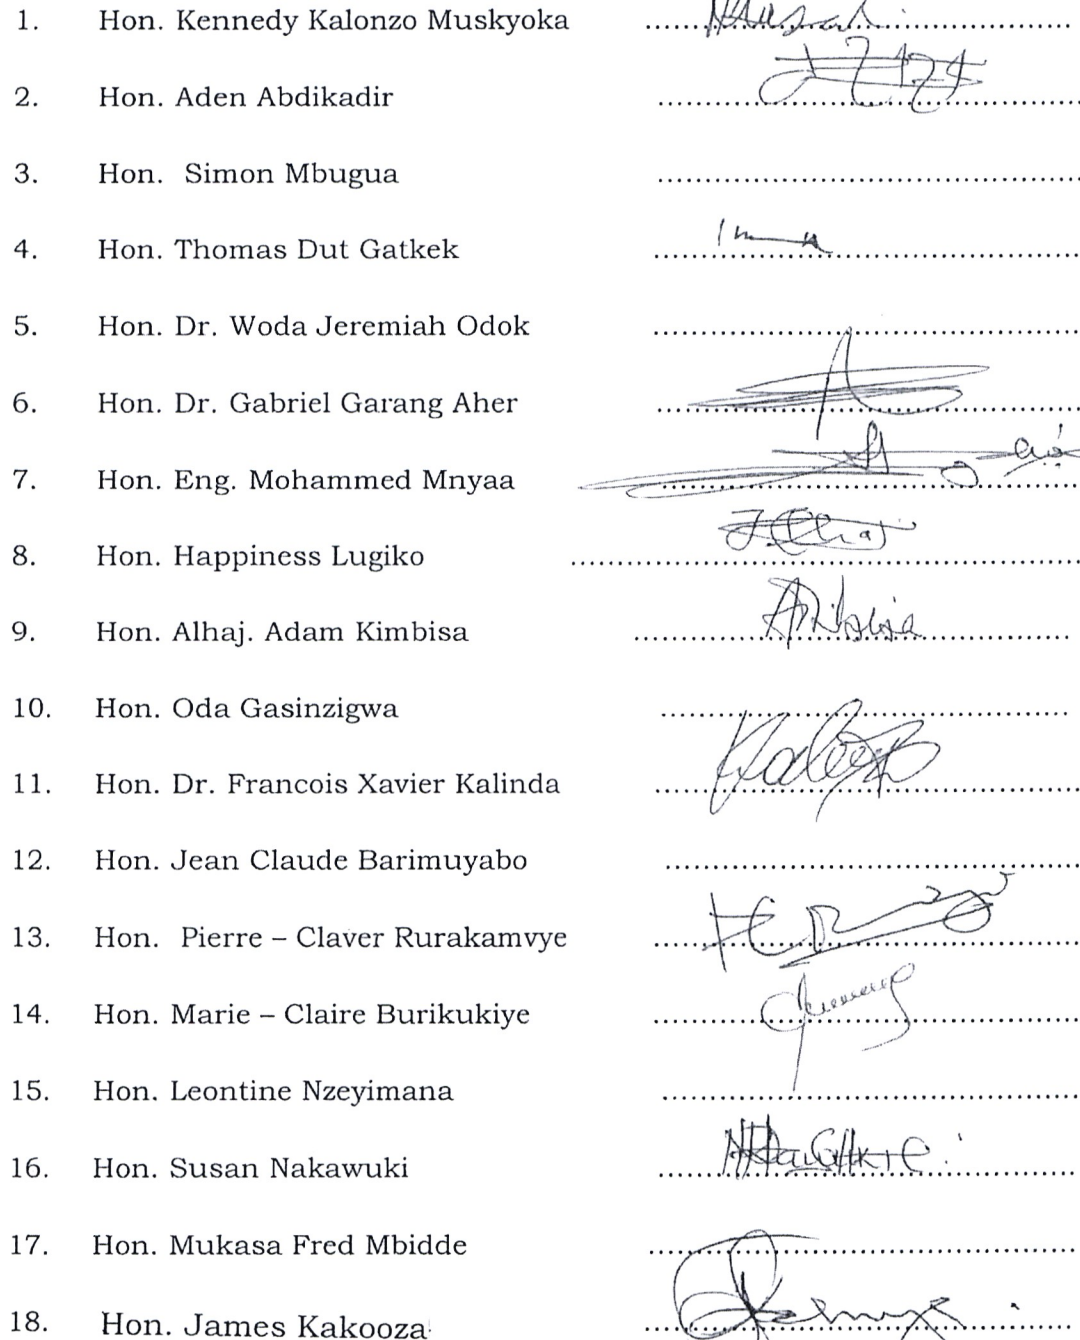 1. Hon. Kennedy Kalonzo Muskyoka
2. Hon. Aden Abdikadir
3. Hon. Simon Mbugua
4. Hon. Thomas Dut Gatkek
5. Hon. Dr. Woda Jeremiah Odok
6. Hon. Dr. Gabriel Garang Aher
7. Hon. Eng. Mohammed Mnyaa
8. Hon. Happiness Lugiko
9. Hon. Alhaj. Adam Kimbisa
10. Hon. Oda Gasinzigwa
11. Hon. Dr. Francois Xavier Kalinda
12. Hon. Jean Claude Barimuyabo
13. Hon. Pierre – Claver Rurakamvye
14. Hon. Marie – Claire Burikukiye
15. Hon. Leontine Nzeyimana
16. Hon. Susan Nakawuki
17. Hon. Mukasa Fred Mbidde
18. Hon. James Kakooza